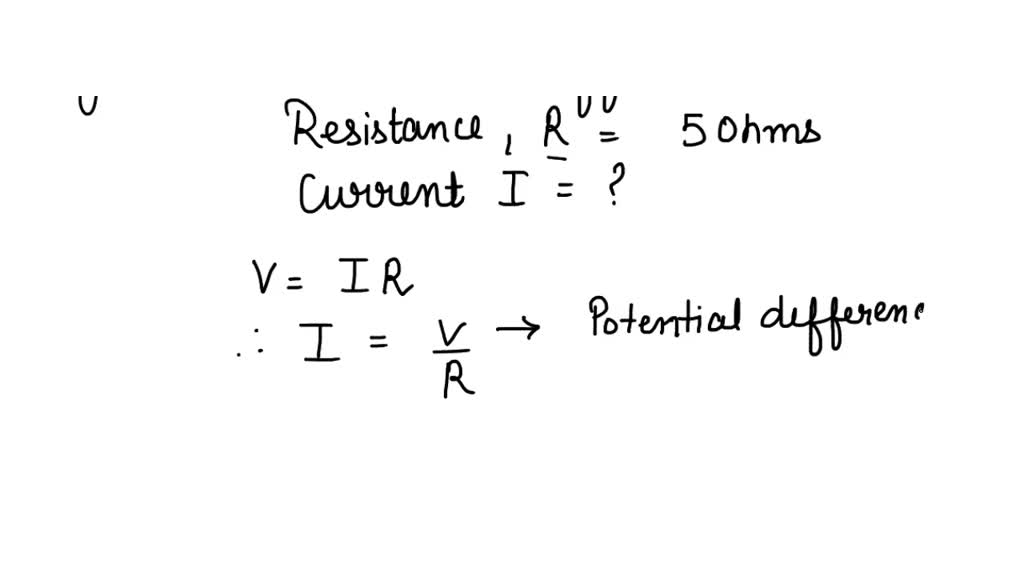 Resistance, R = 5 Ohms
Current I = ?
V = IR
∴ I = V/R → Potential differenc